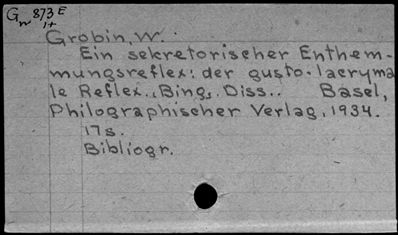 Gn 873 E
1+
Grobin, W.
Ein sekretorischer Enthem-
mungsreflex: der gusto-lacryma
le Reflex., Bing, Diss.. Basel,
Philographischer Verlag, 1934.
17s.
Bibliogr.